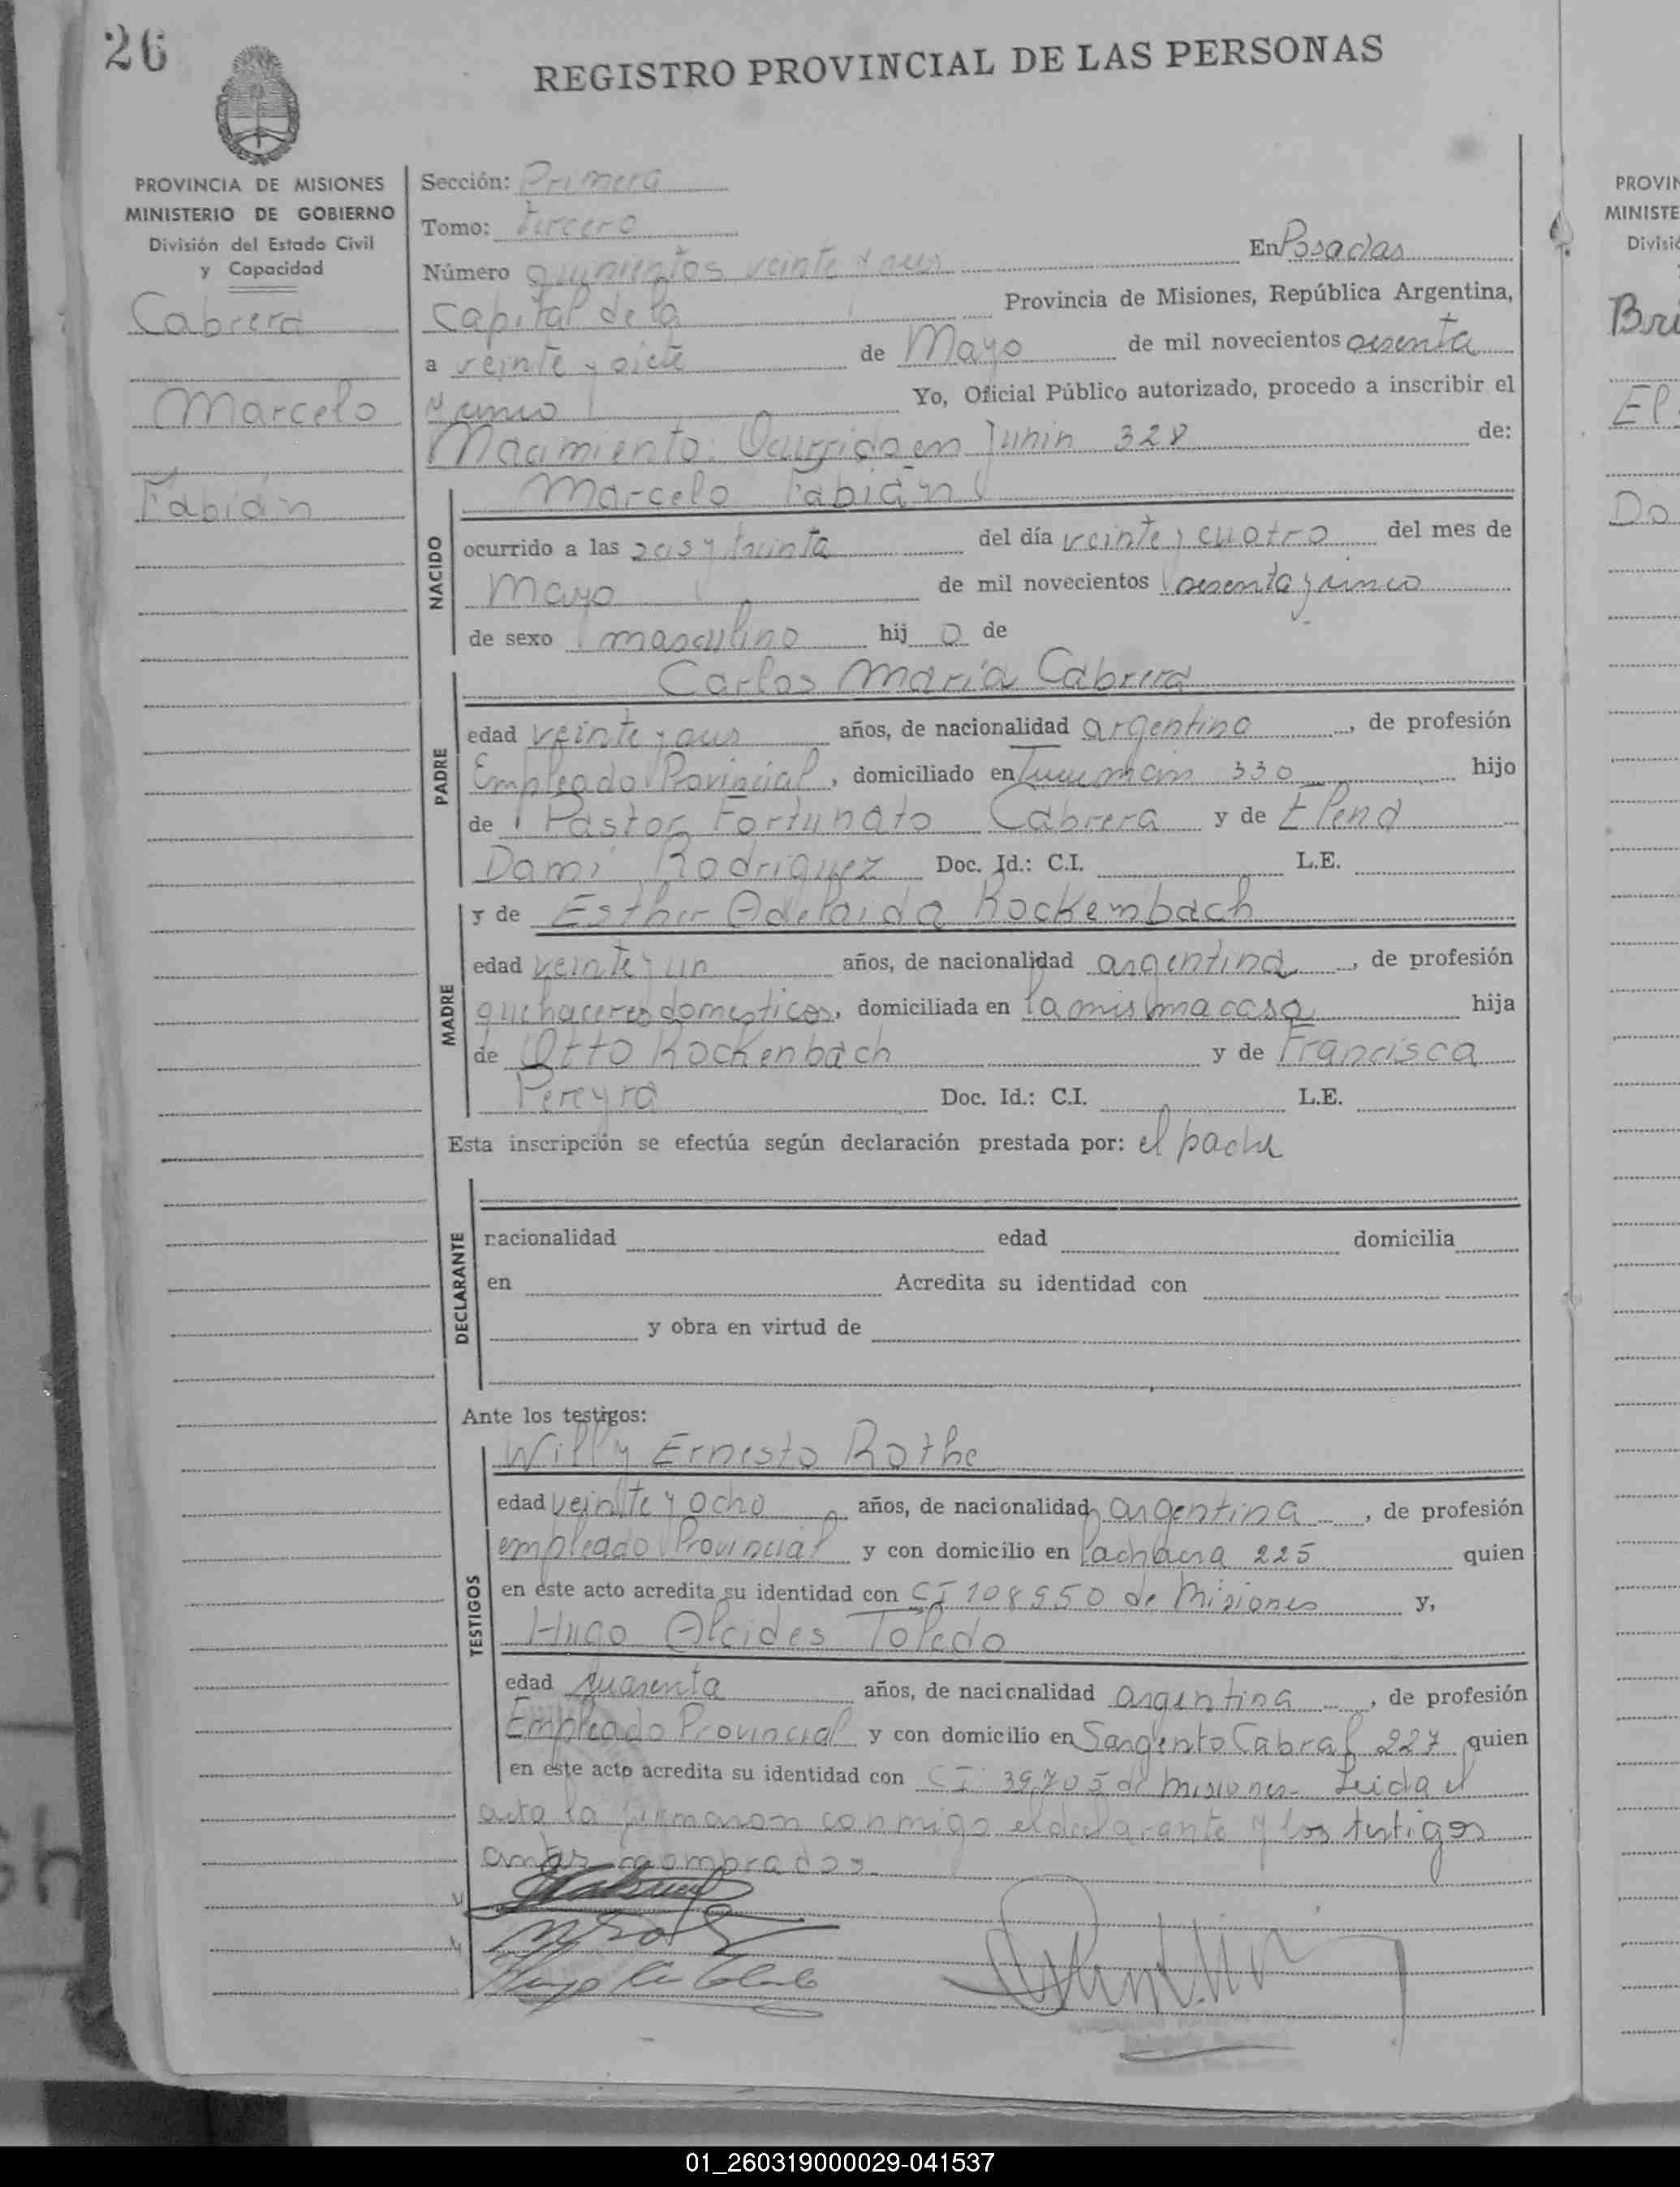 26
REGISTRO PROVINCIAL DE LAS PERSONAS
PROVINCIA DE MISIONES
MINISTERIO DE GOBIERNO
División del Estado Civil
y Capacidad
Cabrera
Marcelo
Fabián
Sección: Primera
Tomo: tercero
Número quinientos veinte y seis En Posadas
Capital de la Provincia de Misiones, República Argentina,
a veinte y siete de Mayo de mil novecientos sesenta
y cinco Yo, Oficial Público autorizado, procedo a inscribir el
Nacimiento: Ocurrido en Junin 328 de:
NACIDO
Marcelo Fabián
ocurrido a las seis y treinta del día veinte y cuatro del mes de
Mayo de mil novecientos sesenta y cinco
de sexo masculino hij o de
PADRE
Carlos María Cabrera
edad veinte y seis años, de nacionalidad argentino, de profesión
Empleado Provincial, domiciliado en Tucuman 330 hijo
de Pastor Fortunato Cabrera y de Elena
Dami Rodriguez Doc. Id.: C.I. L.E.
MADRE
y de Esther Adelaida Rockembach
edad veinte y un años, de nacionalidad argentina, de profesión
quehaceres domesticos, domiciliada en la misma casa hija
de Otto Rockenbach y de Francisca
Pereyra Doc. Id.: C.I. L.E.
Esta inscripción se efectúa según declaración prestada por: el padre
DECLARANTE
nacionalidad edad domicilia
en Acredita su identidad con
y obra en virtud de
Ante los testigos:
TESTIGOS
Willy Ernesto Rothe
edad veinte y ocho años, de nacionalidad argentina, de profesión
empleado Provincial y con domicilio en 225 quien
en este acto acredita su identidad con CI 108950 de Misiones y,
Hugo Alcides Toledo
edad cuarenta años, de nacionalidad argentina, de profesión
Empleado Provincial y con domicilio en Sargento Cabral 227 quien
en este acto acredita su identidad con CI 39.705 de Misiones- Leida el
acta la firmaron conmigo el declarante y los testigos
antes nombrados.
PROVIN
MINISTE
Divisió
Bri
El
Do
01_260319000029-041537